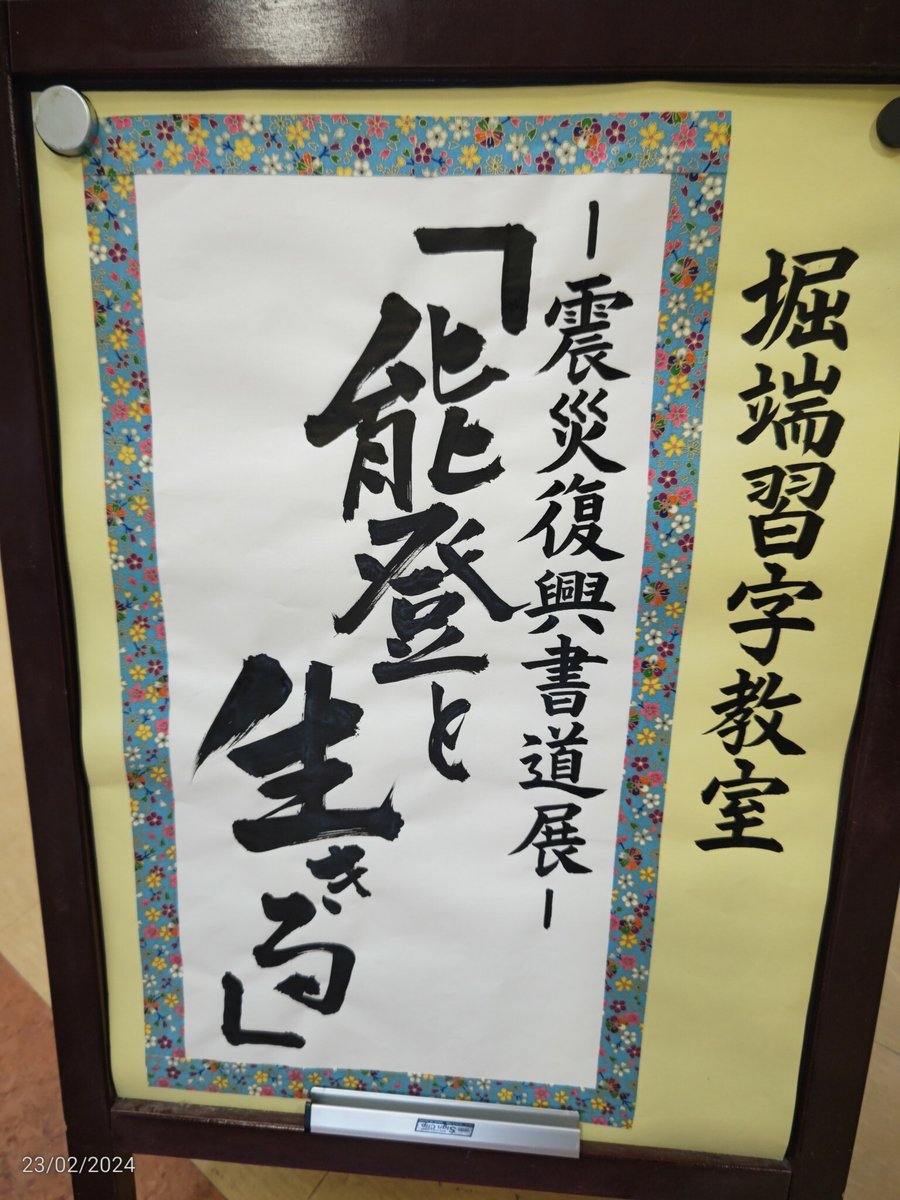 堀端習字教室
－震災復興書道展－
「能登と
生きる」
Sign Clip
23/02/2024